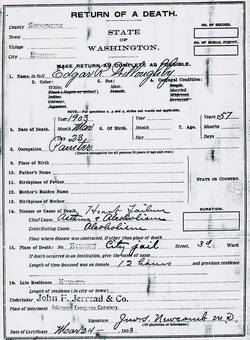 RETURN OF A DEATH.
County SNOHOMISH
STATE
OF
WASHINGTON.
NO. OF RECORD.
Town
Village
NO. OF BURIAL PERMIT.
City EVERETT
MAKE RETURN AS COMPLETE AS POSSIBLE.
1. Name, in full Edgar K Willoughby
2. Color: 3. Sex: 4. Conjugal Condition:
White, Male, Single,
Female. Married,
Widowed,
Divorced.
Year 1903
5. Date of Death. Month Mar 7. Age. Years 57
Day 23 Months
8. Occupation Painter Days
9. Place of Birth
10. Father's Name
11. Birthplace of Father
12. Mother's Maiden Name
13. Birthplace of Mother
14. Disease or Cause of Death: Heart Failure DURATION.
Chief Cause Asthma & Alcoholism
Contributing Cause Alcoholism
Place where disease was contracted, if other than place of death
15. Place of Death: No. EVERETT City jail Street, 3rd Ward.
If death occurred in an Institution, give the name of same
Length of time deceased was an inmate 12 hours and previous residence
16. Late Residence EVERETT
Length of residence (in city or town)
Undertaker John F. Jerread & Co.
Place of Interment Evergreen Cemetery.
Signature Jno. S. Newcomb M.D.
(Of physician or informant.)
Date of Certificate Mar 24 1903